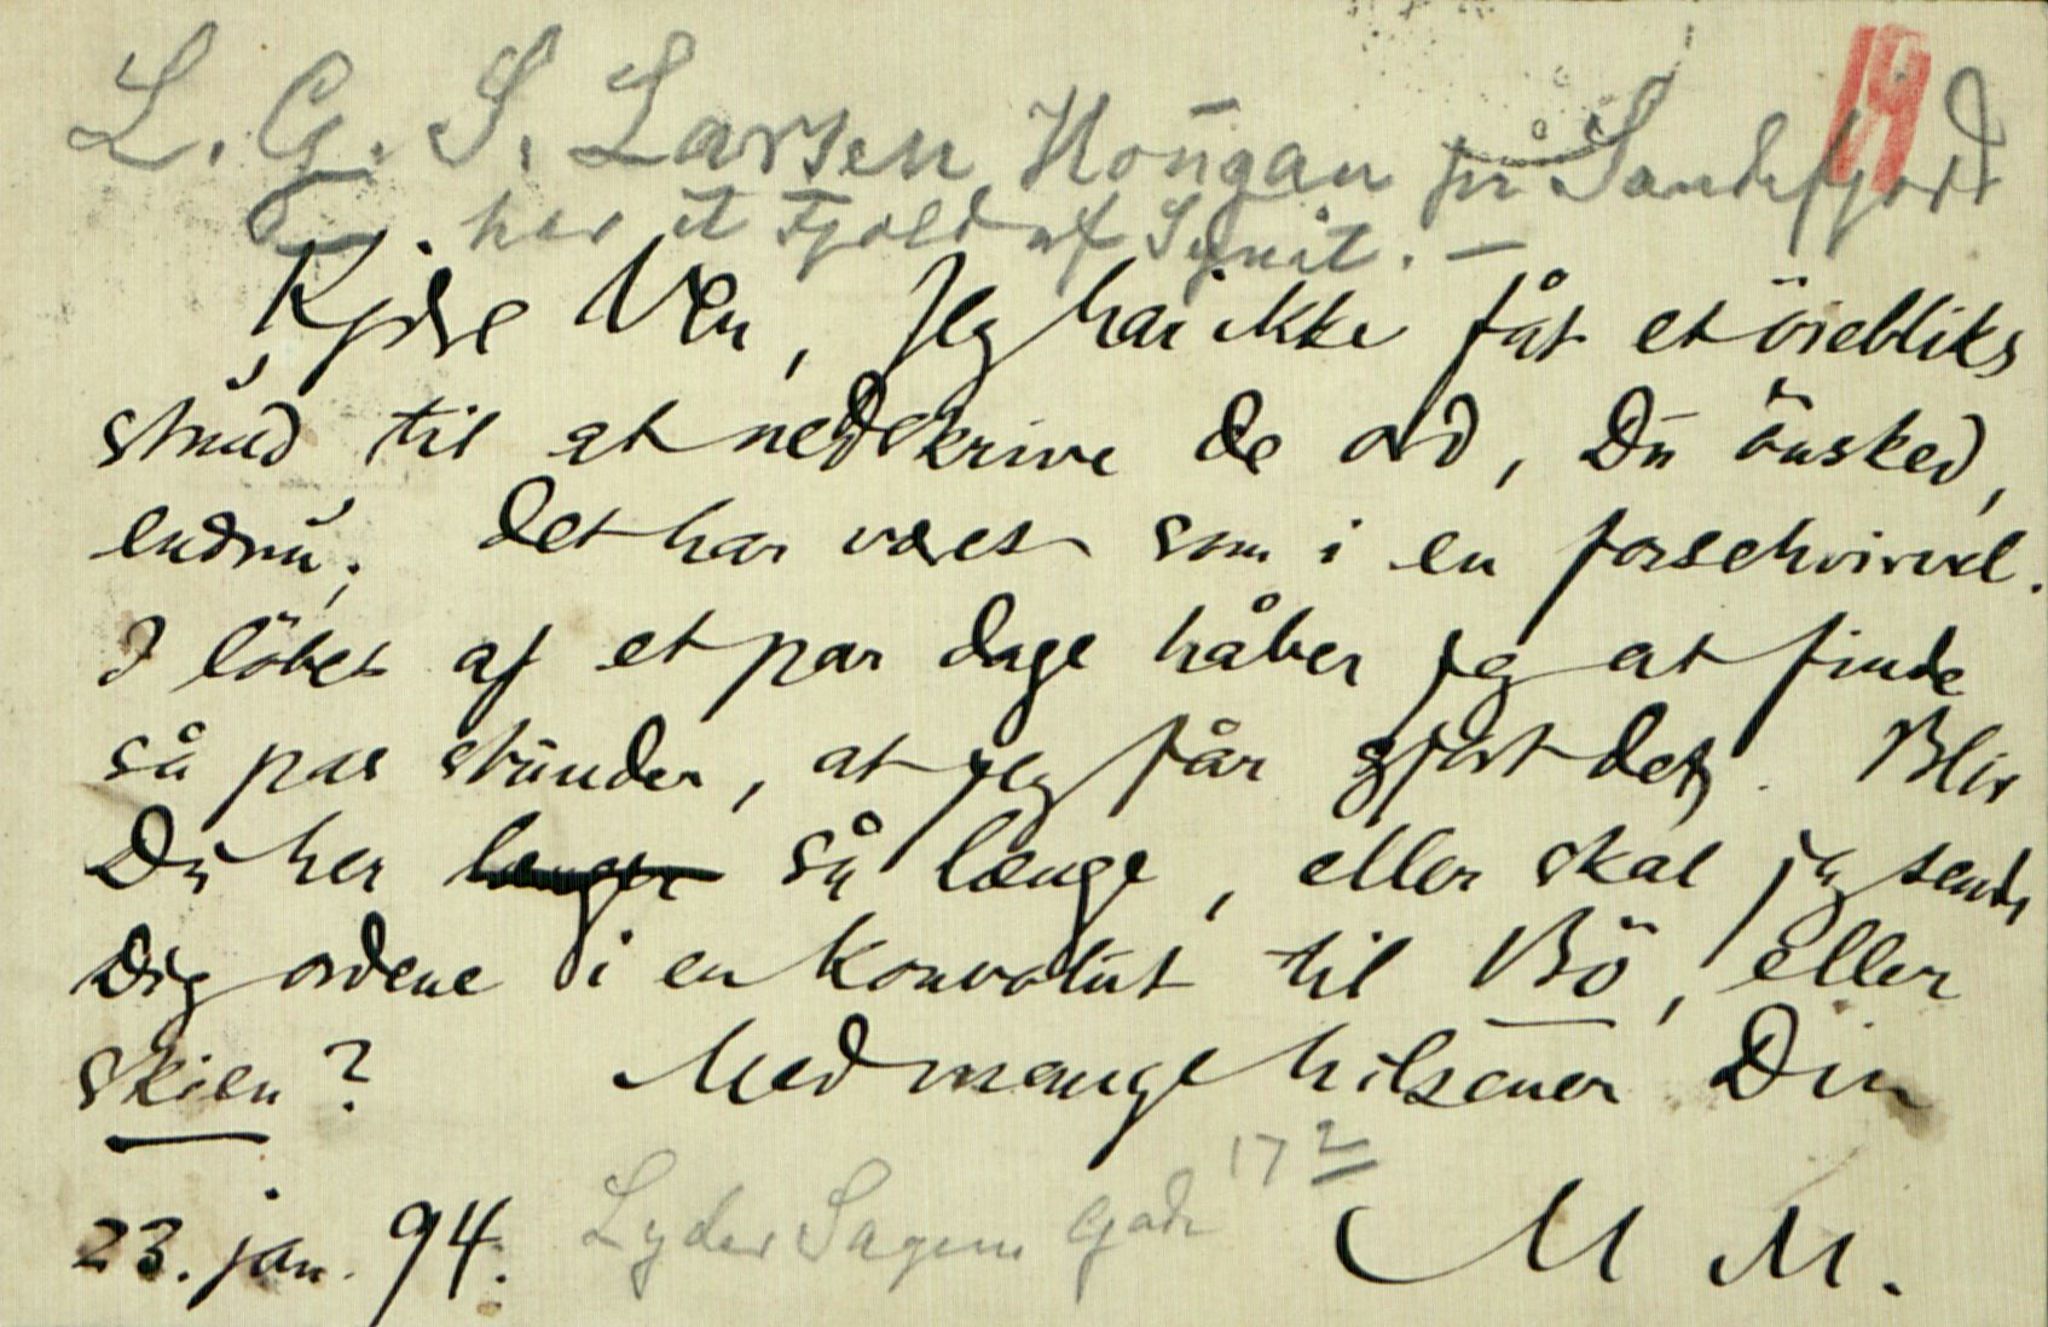 L. G. S. Larsen Hougan pr Sandefjord
har et Fjold af Synit. —
19
Kjære Ven, Jeg har ikke fåt et öiebliks
stund til at nedskrive de ord, Du önsked,
endnu; det har været som i en fossehvirvel.
I löbet af et par dage håber jeg at finde
så pas stunder, at jeg får gjort det. Blir
Du her længer så længe, eller skal jeg sende
Dig ordene i en konvolut til Bö, eller
Skien? Med mange hilsener Din
23. jan. 94. Lyder Sagens Gade 17 2
M M.